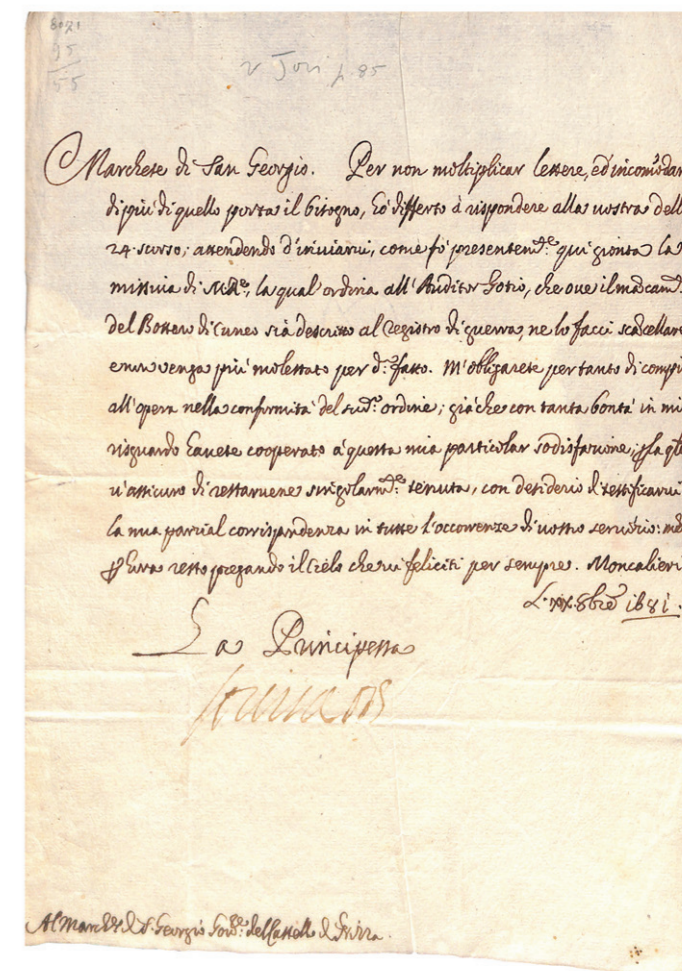 8071
95
55
v Jovi p. 85
Marchese di San Georgio. Per non moltiplicar lettere, ed incomodar
di più di quello porta il bisogno, hò differto à rispondere alla vostra delli
24 scorso; attendendo d'inviarvi, come fò presentem.te qui gionta la
missiva di M.R., la qual' ordina all' Auditor Gotio, che ove il
del Bottero di Cuneo sià descritto al Registro di guerra, ne lo facci scancellare
e non venga più molestato per d.o fatto. M'obligarete pertanto di compir
all'opera nella conformità del sud.o ordine; già che con tanta bontà in mio
risguardo havete cooperato à questa mia particolar sodisfazione; per la qle
v'assicuro di restarvene singolarm.te tenuta, con desiderio di testificarvi
la mia parzial corrispondenza in tutte l'occorrenze di vostro servizio:
per hora resto pregando il Cielo che vi feliciti per sempre. Moncalieri
Li xx 8bre 1681.
La Principessa
Al March.e di S. Georgio Gov.re del Castello di